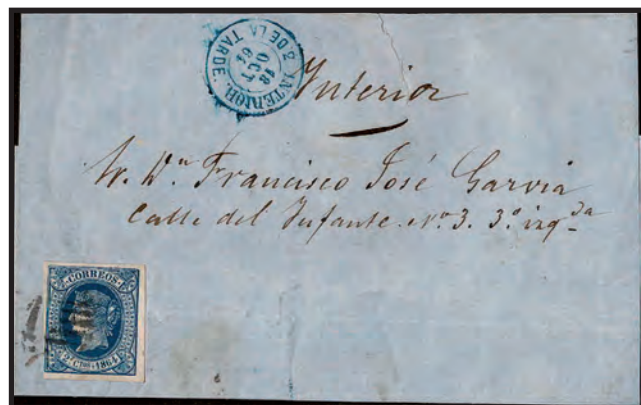 INTERIOR.
3 DE LA TARDE.
18
OCT
64
Interior
Francisco José Garvia
Calle del Infante. Nº 3. 3º izqda
CORREOS
2 CUOS 1864